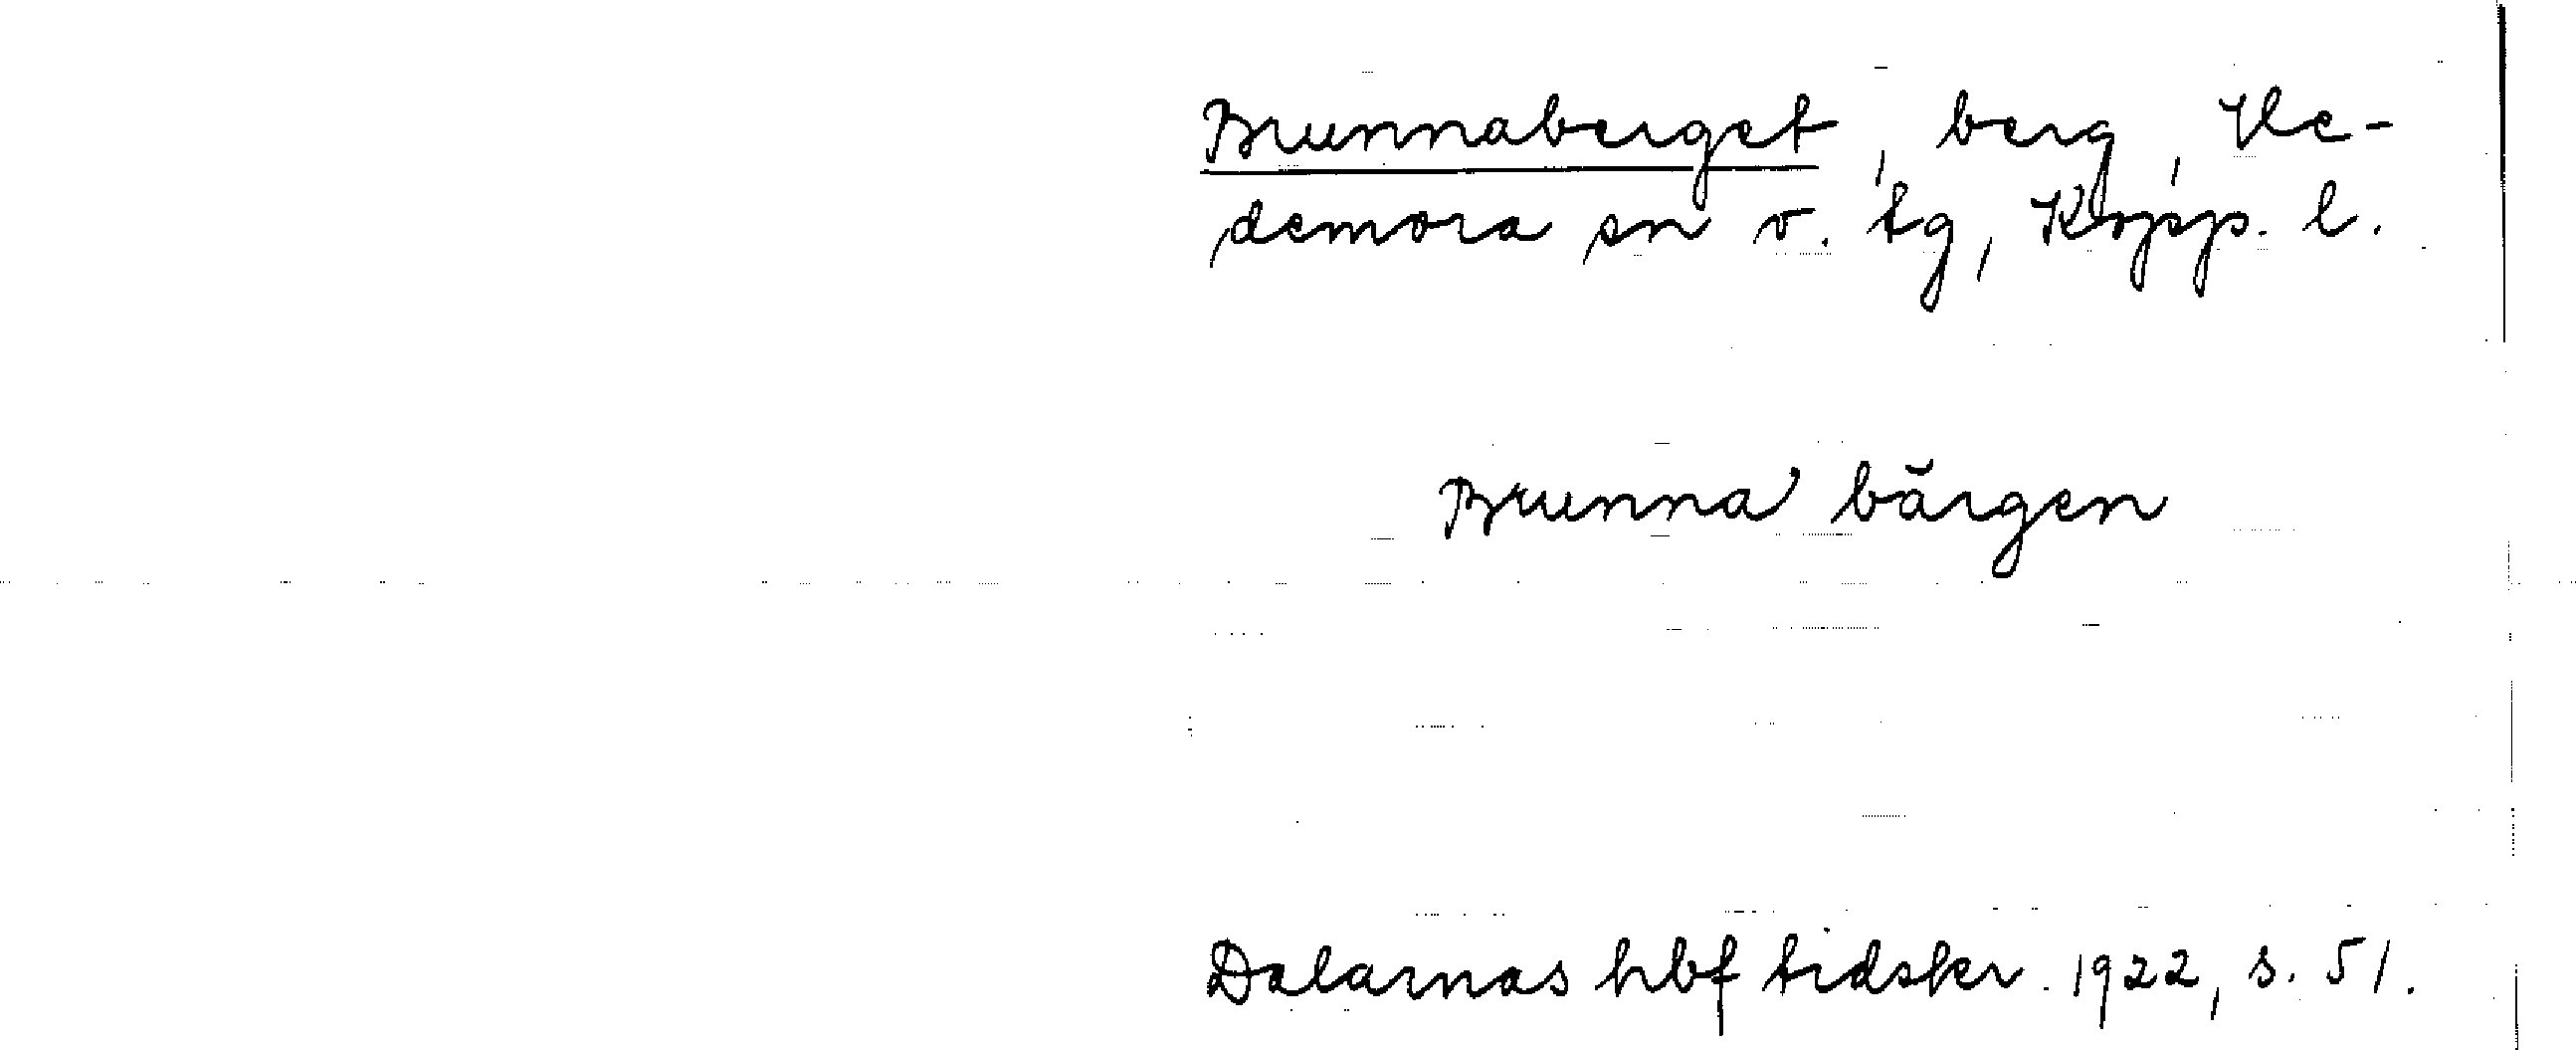 Brunnaberget, berg, He-
demora sn v. tg, Kopp. l.
Brunna bărgen
Dalarnas hbf tidskr. 1922, s. 51.